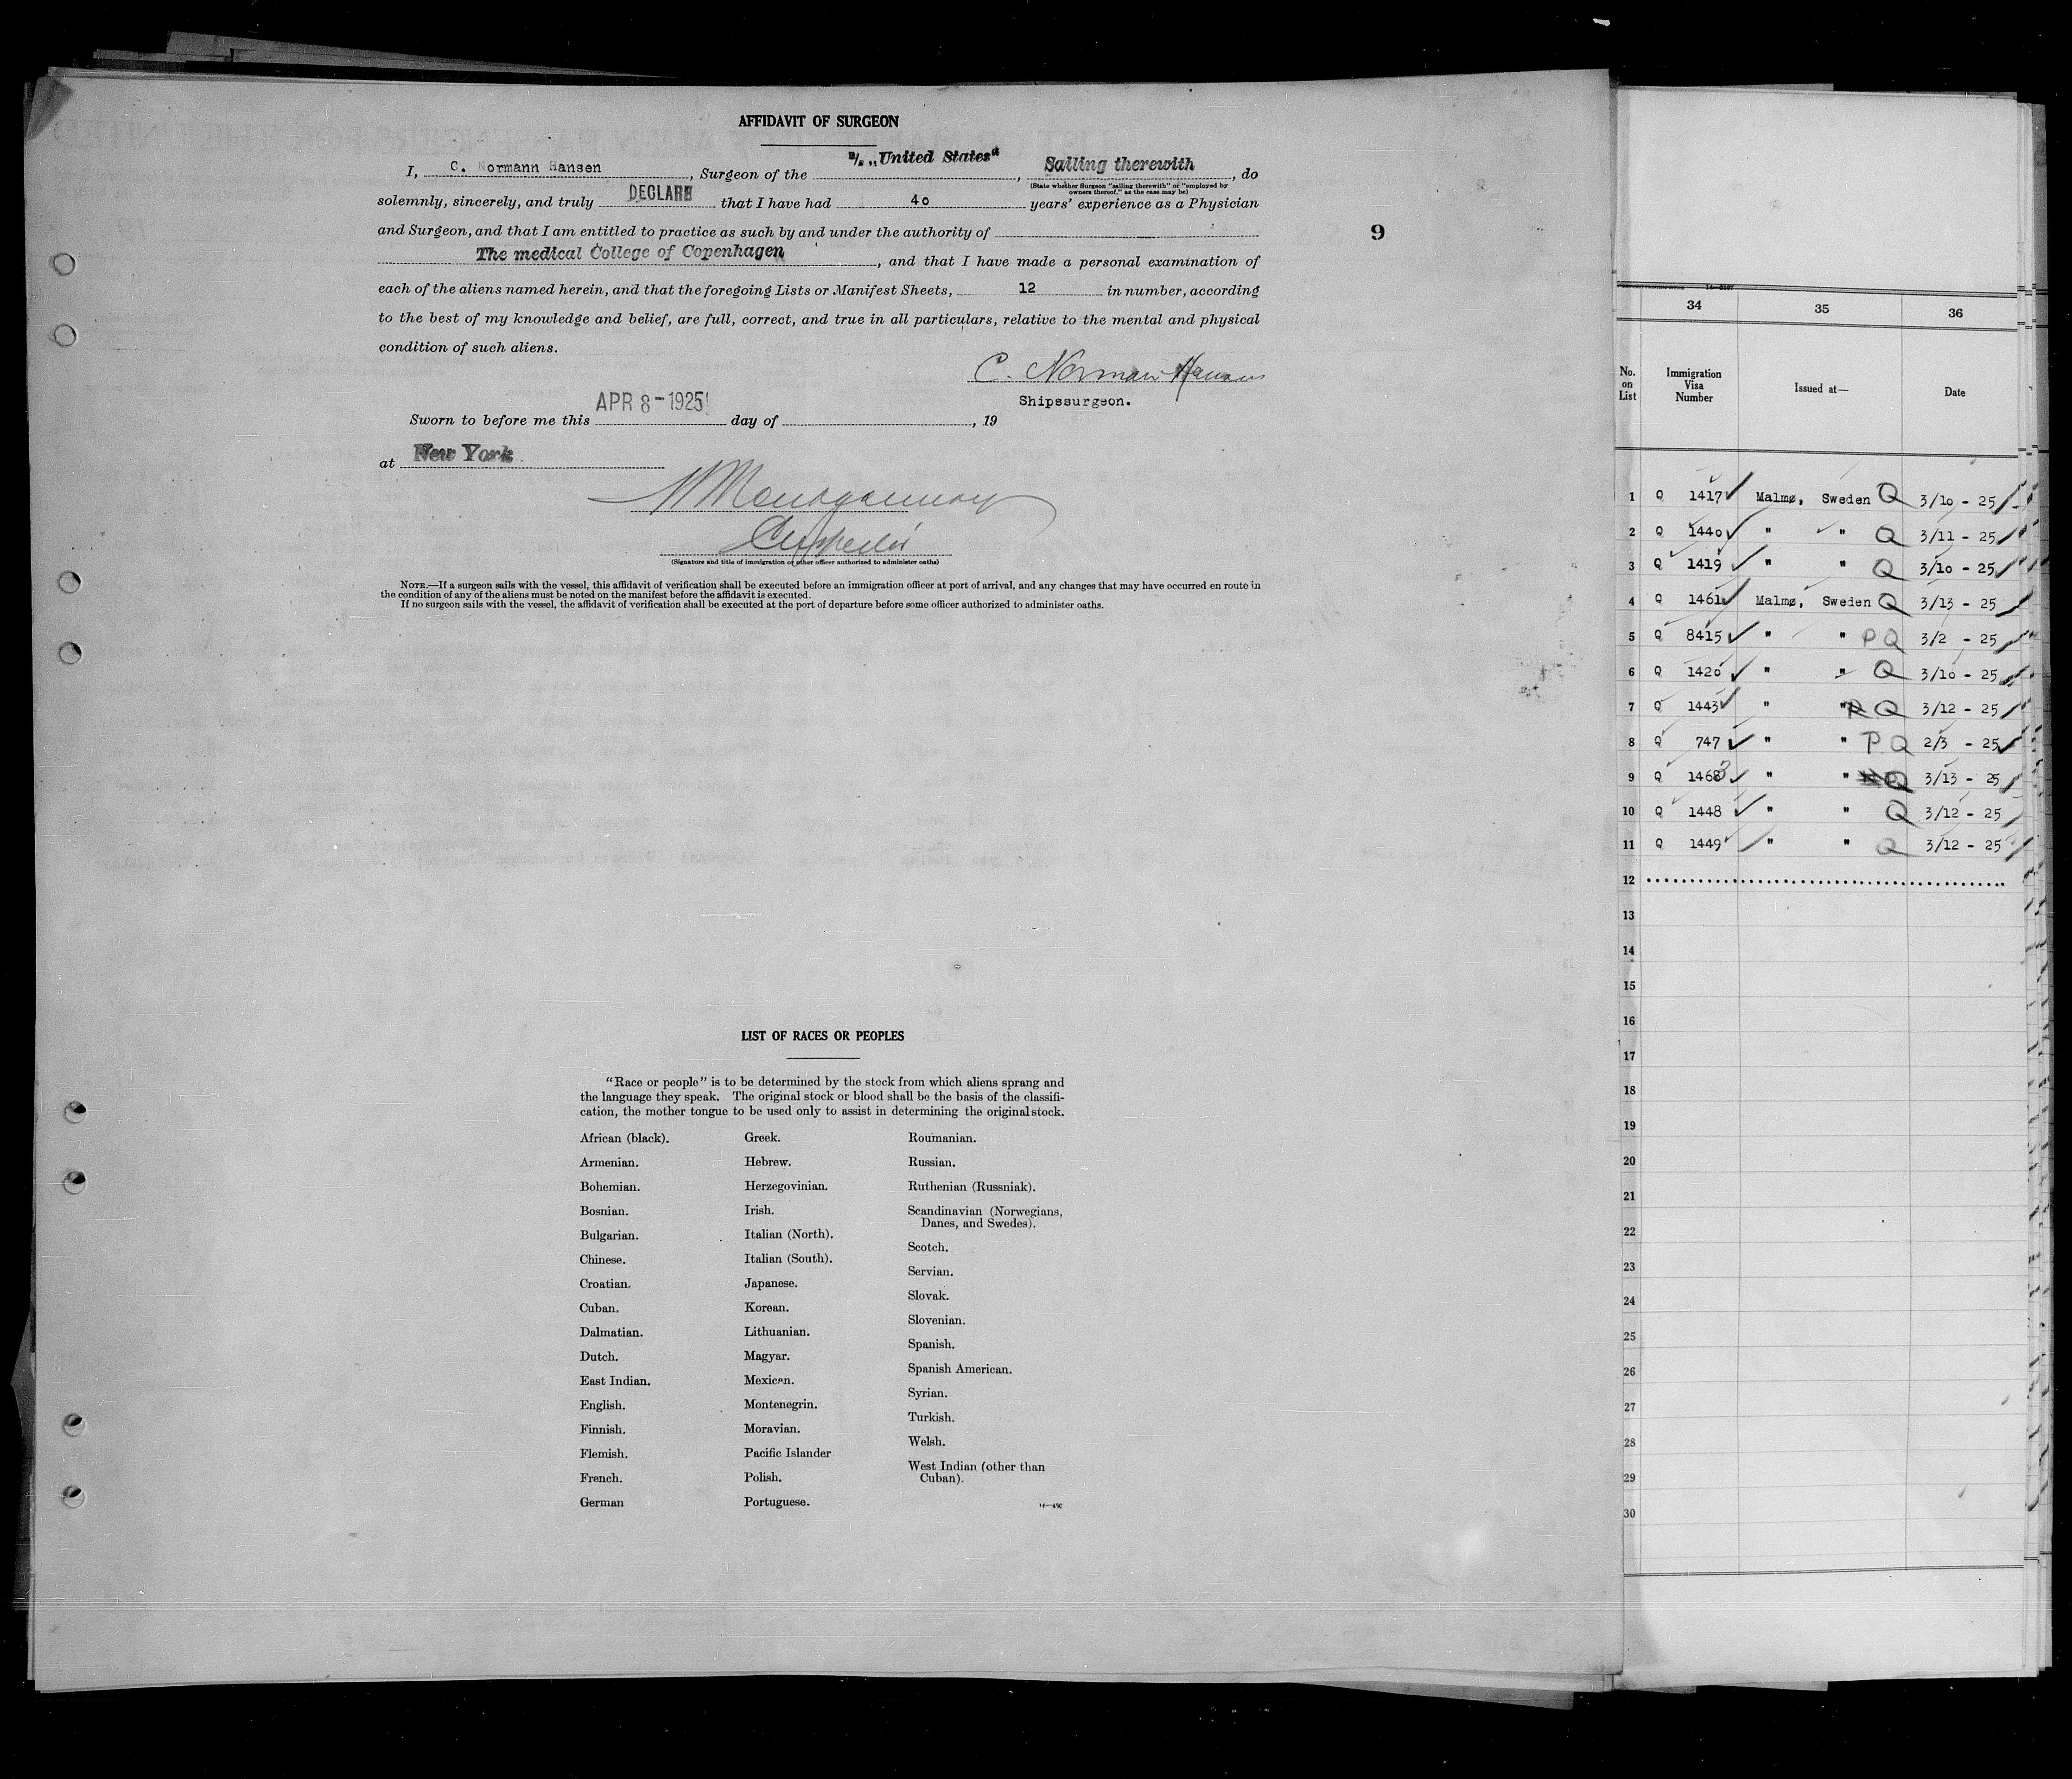 AFFIDAVIT OF SURGEON
I, C. Normann Hansen, Surgeon of the s/s „United States", Sailing therewith, do
(State whether Surgeon "sailing therewith" or "employed by
owners thereof," as the case may be)
solemnly, sincerely, and truly DECLARE that I have had 40 years' experience as a Physician
and Surgeon, and that I am entitled to practice as such by and under the authority of
The medical College of Copenhagen, and that I have made a personal examination of
each of the aliens named herein, and that the foregoing Lists or Manifest Sheets, 12 in number, according
to the best of my knowledge and belief, are full, correct, and true in all particulars, relative to the mental and physical
condition of such aliens.
C. Norman Hansen
Shipssurgeon.
Sworn to before me this APR 8-1925 day of , 19
at New York
Montgomery
Inspector
(Signature and title of immigration or other officer authorized to administer oaths)
NOTE.—If a surgeon sails with the vessel, this affidavit of verification shall be executed before an immigration officer at port of arrival, and any changes that may have occurred en route in
the condition of any of the aliens must be noted on the manifest before the affidavit is executed.
If no surgeon sails with the vessel, the affidavit of verification shall be executed at the port of departure before some officer authorized to administer oaths.
9
LIST OF RACES OR PEOPLES
"Race or people" is to be determined by the stock from which aliens sprang and
the language they speak. The original stock or blood shall be the basis of the classifi-
cation, the mother tongue to be used only to assist in determining the original stock.
African (black).
Armenian.
Bohemian.
Bosnian.
Bulgarian.
Chinese.
Croatian.
Cuban.
Dalmatian.
Dutch.
East Indian.
English.
Finnish.
Flemish.
French.
German
Greek.
Hebrew.
Herzegovinian.
Irish.
Italian (North).
Italian (South).
Japanese.
Korean.
Lithuanian.
Magyar.
Mexican.
Montenegrin.
Moravian.
Pacific Islander
Polish.
Portuguese.
Roumanian.
Russian.
Ruthenian (Russniak).
Scandinavian (Norwegians,
Danes, and Swedes).
Scotch.
Servian.
Slovak.
Slovenian.
Spanish.
Spanish American.
Syrian.
Turkish.
Welsh.
West Indian (other than
Cuban).
34 35 36
No. on List Immigration Visa Number Issued at— Date
1 Q 1417 Malmø, Sweden Q 3/10 - 25
2 Q 1440 " " Q 3/11 - 25
3 Q 1419 " " Q 3/10 - 25
4 Q 1461 Malmø, Sweden Q 3/13 - 25
5 Q 8415 " " P Q 3/2 - 25
6 Q 1420 " " Q 3/10 - 25
7 Q 1443 " " Q 3/12 - 25
8 Q 747 " " P Q 2/3 - 25
9 Q 1463 " " Q 3/13 - 25
10 Q 1448 " " Q 3/12 - 25
11 Q 1449 " " Q 3/12 - 25
12
13
14
15
16
17
18
19
20
21
22
23
24
25
26
27
28
29
30